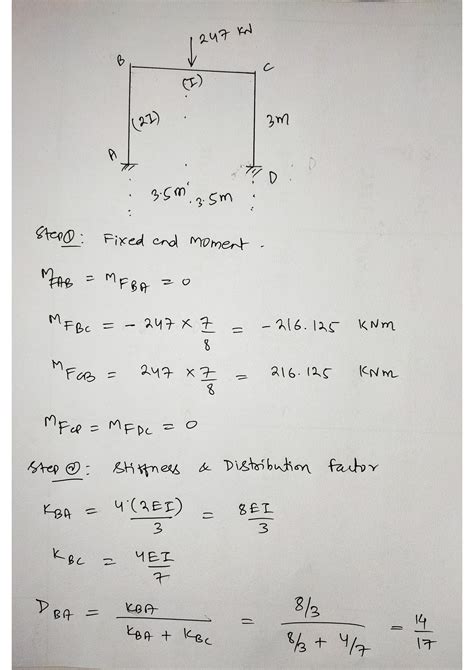 247 KN
B
C
(I)
(2I)
3m
A
D
3.5m
3.5m
Step①: Fixed end moment.
MFAB = MFBA = 0
MFBC = - 247 × 7/8 = - 216.125 KNm
MFCB = 247 × 7/8 = 216.125 KNm
MFCD = MFDC = 0
Step②: Stiffness & Distribution factor
KBA = 4(2EI)/3 = 8EI/3
KBC = 4EI/7
DBA = KBA/(KBA + KBC) = 8/3/(8/3 + 4/7) = 14/17